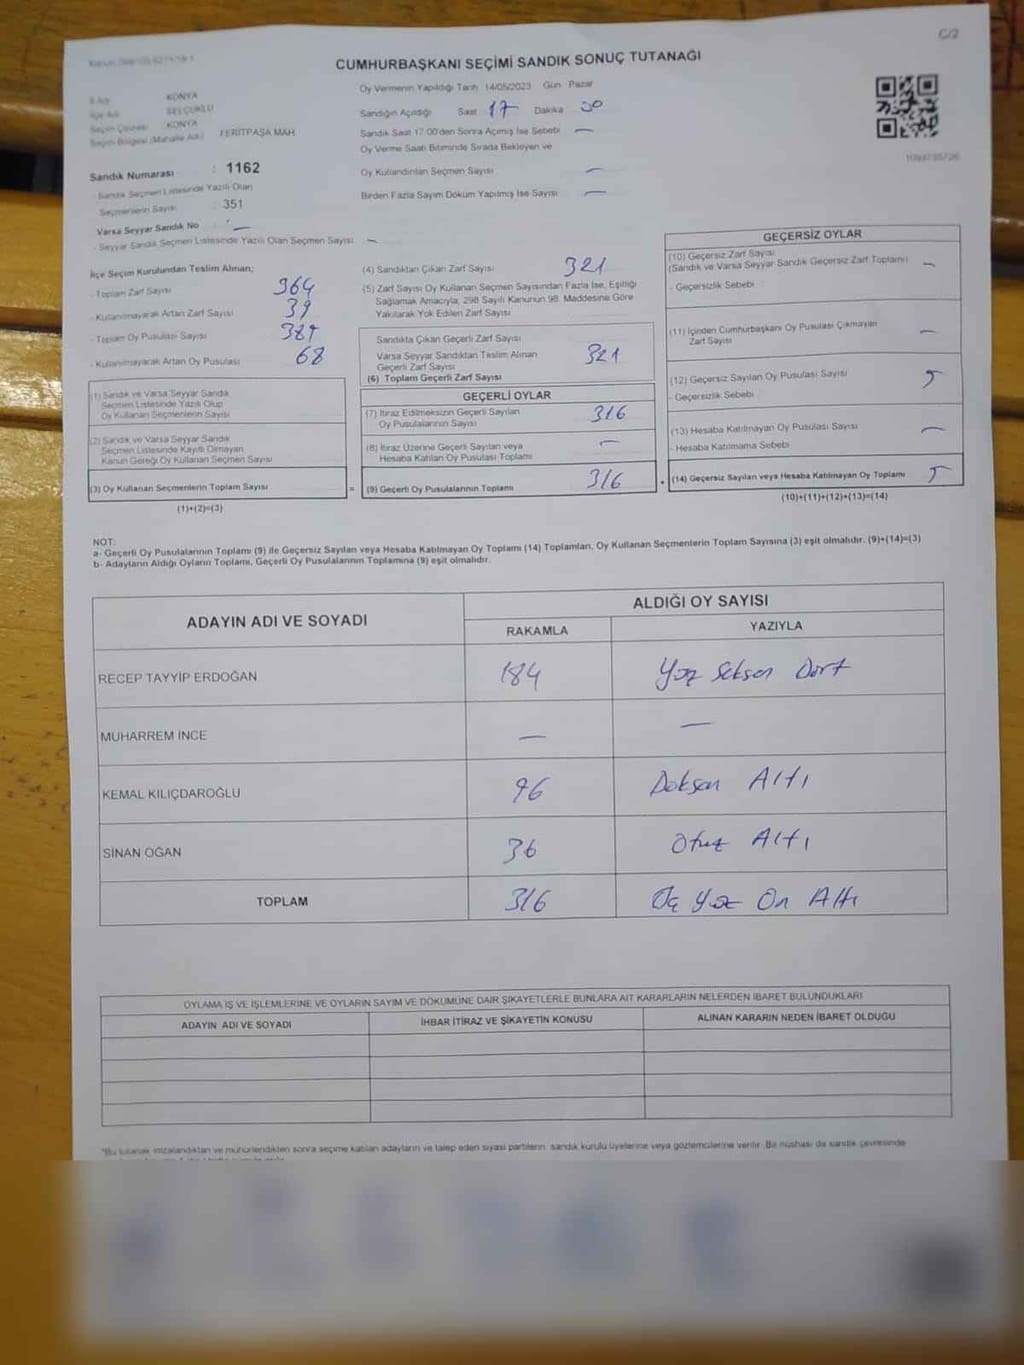 C/2
CUMHURBAŞKANI SEÇİMİ SANDIK SONUÇ TUTANAĞI
İl Adı KONYA
İlçe Adı SELÇUKLU
Seçim Çevresi KONYA
Seçim Bölgesi (Mahalle Adı) FERİTPAŞA MAH
Sandık Numarası : 1162
Sandık Seçmen Listesinde Yazılı Olan
Seçmenlerin Sayısı : 351
Varsa Seyyar Sandık No : —
- Seyyar Sandık Seçmen Listesinde Yazılı Olan Seçmen Sayısı —
Oy Vermenin Yapıldığı Tarih 14/05/2023 Gün Pazar
Sandığın Açıldığı Saat 17 Dakika 30
Sandık Saat 17.00'den Sonra Açılmış İse Sebebi —
Oy Verme Saati Bitiminde Sırada Bekleyen ve
Oy Kullandırılan Seçmen Sayısı —
Birden Fazla Sayım Döküm Yapılmış İse Sayısı —
İlçe Seçim Kurulundan Teslim Alınan;
- Toplam Zarf Sayısı 364
- Kullanılmayarak Artan Zarf Sayısı 39
- Toplam Oy Pusulası Sayısı
- Kullanılmayarak Artan Oy Pusulası 68
(1) Sandık ve Varsa Seyyar Sandık
Seçmen Listesinde Yazılı Olup
Oy Kullanan Seçmenlerin Sayısı
(2) Sandık ve Varsa Seyyar Sandık
Seçmen Listesinde Kayıtlı Olmayan
Kanun Gereği Oy Kullanan Seçmen Sayısı
(3) Oy Kullanan Seçmenlerin Toplam Sayısı
(1)+(2)=(3)
=
(4) Sandıktan Çıkan Zarf Sayısı 321
(5) Zarf Sayısı Oy Kullanan Seçmen Sayısından Fazla İse, Eşitliği
Sağlamak Amacıyla, 298 Sayılı Kanunun 98. Maddesine Göre
Yakılarak Yok Edilen Zarf Sayısı
Sandıkta Çıkan Geçerli Zarf Sayısı
Varsa Seyyar Sandıktan Teslim Alınan
Geçerli Zarf Sayısı
(6) Toplam Geçerli Zarf Sayısı 321
GEÇERLİ OYLAR
(7) İtiraz Edilmeksizin Geçerli Sayılan
Oy Pusulalarının Sayısı 316
(8) İtiraz Üzerine Geçerli Sayılan veya
Hesaba Katılan Oy Pusulası Toplamı —
(9) Geçerli Oy Pusulalarının Toplamı 316
+
GEÇERSİZ OYLAR
(10) Geçersiz Zarf Sayısı
(Sandık ve Varsa Seyyar Sandık Geçersiz Zarf Toplamı) —
- Geçersizlik Sebebi
(11) İçinden Cumhurbaşkanı Oy Pusulası Çıkmayan
Zarf Sayısı —
(12) Geçersiz Sayılan Oy Pusulası Sayısı 5
- Geçersizlik Sebebi
(13) Hesaba Katılmayan Oy Pusulası Sayısı —
- Hesaba Katılmama Sebebi
(14) Geçersiz Sayılan veya Hesaba Katılmayan Oy Toplamı 5
(10)+(11)+(12)+(13)=(14)
NOT:
a- Geçerli Oy Pusulalarının Toplamı (9) ile Geçersiz Sayılan veya Hesaba Katılmayan Oy Toplamı (14) Toplamları, Oy Kullanan Seçmenlerin Toplam Sayısına (3) eşit olmalıdır. (9)+(14)=(3)
b- Adayların Aldığı Oyların Toplamı, Geçerli Oy Pusulalarının Toplamına (9) eşit olmalıdır.
ADAYIN ADI VE SOYADI ALDIĞI OY SAYISI
RAKAMLA YAZIYLA
RECEP TAYYİP ERDOĞAN 184 Yüz Seksen Dört
MUHARREM İNCE — —
KEMAL KILIÇDAROĞLU 96 Doksan Altı
SİNAN OĞAN 36 Otuz Altı
TOPLAM 316 Üç Yüz On Altı
OYLAMA İŞ VE İŞLEMLERİNE VE OYLARIN SAYIM VE DÖKÜMÜNE DAİR ŞİKAYETLERLE BUNLARA AİT KARARLARIN NELERDEN İBARET BULUNDUKLARI
ADAYIN ADI VE SOYADI İHBAR İTİRAZ VE ŞİKAYETİN KONUSU ALINAN KARARIN NEDEN İBARET OLDUĞU
*Bu tutanak imzalandıktan ve mühürlendikten sonra seçime katılan adayların ve talep eden siyasi partilerin sandık kurulu üyelerine veya gözlemcilerine verilir. Bir nüshası da sandık çevresinde